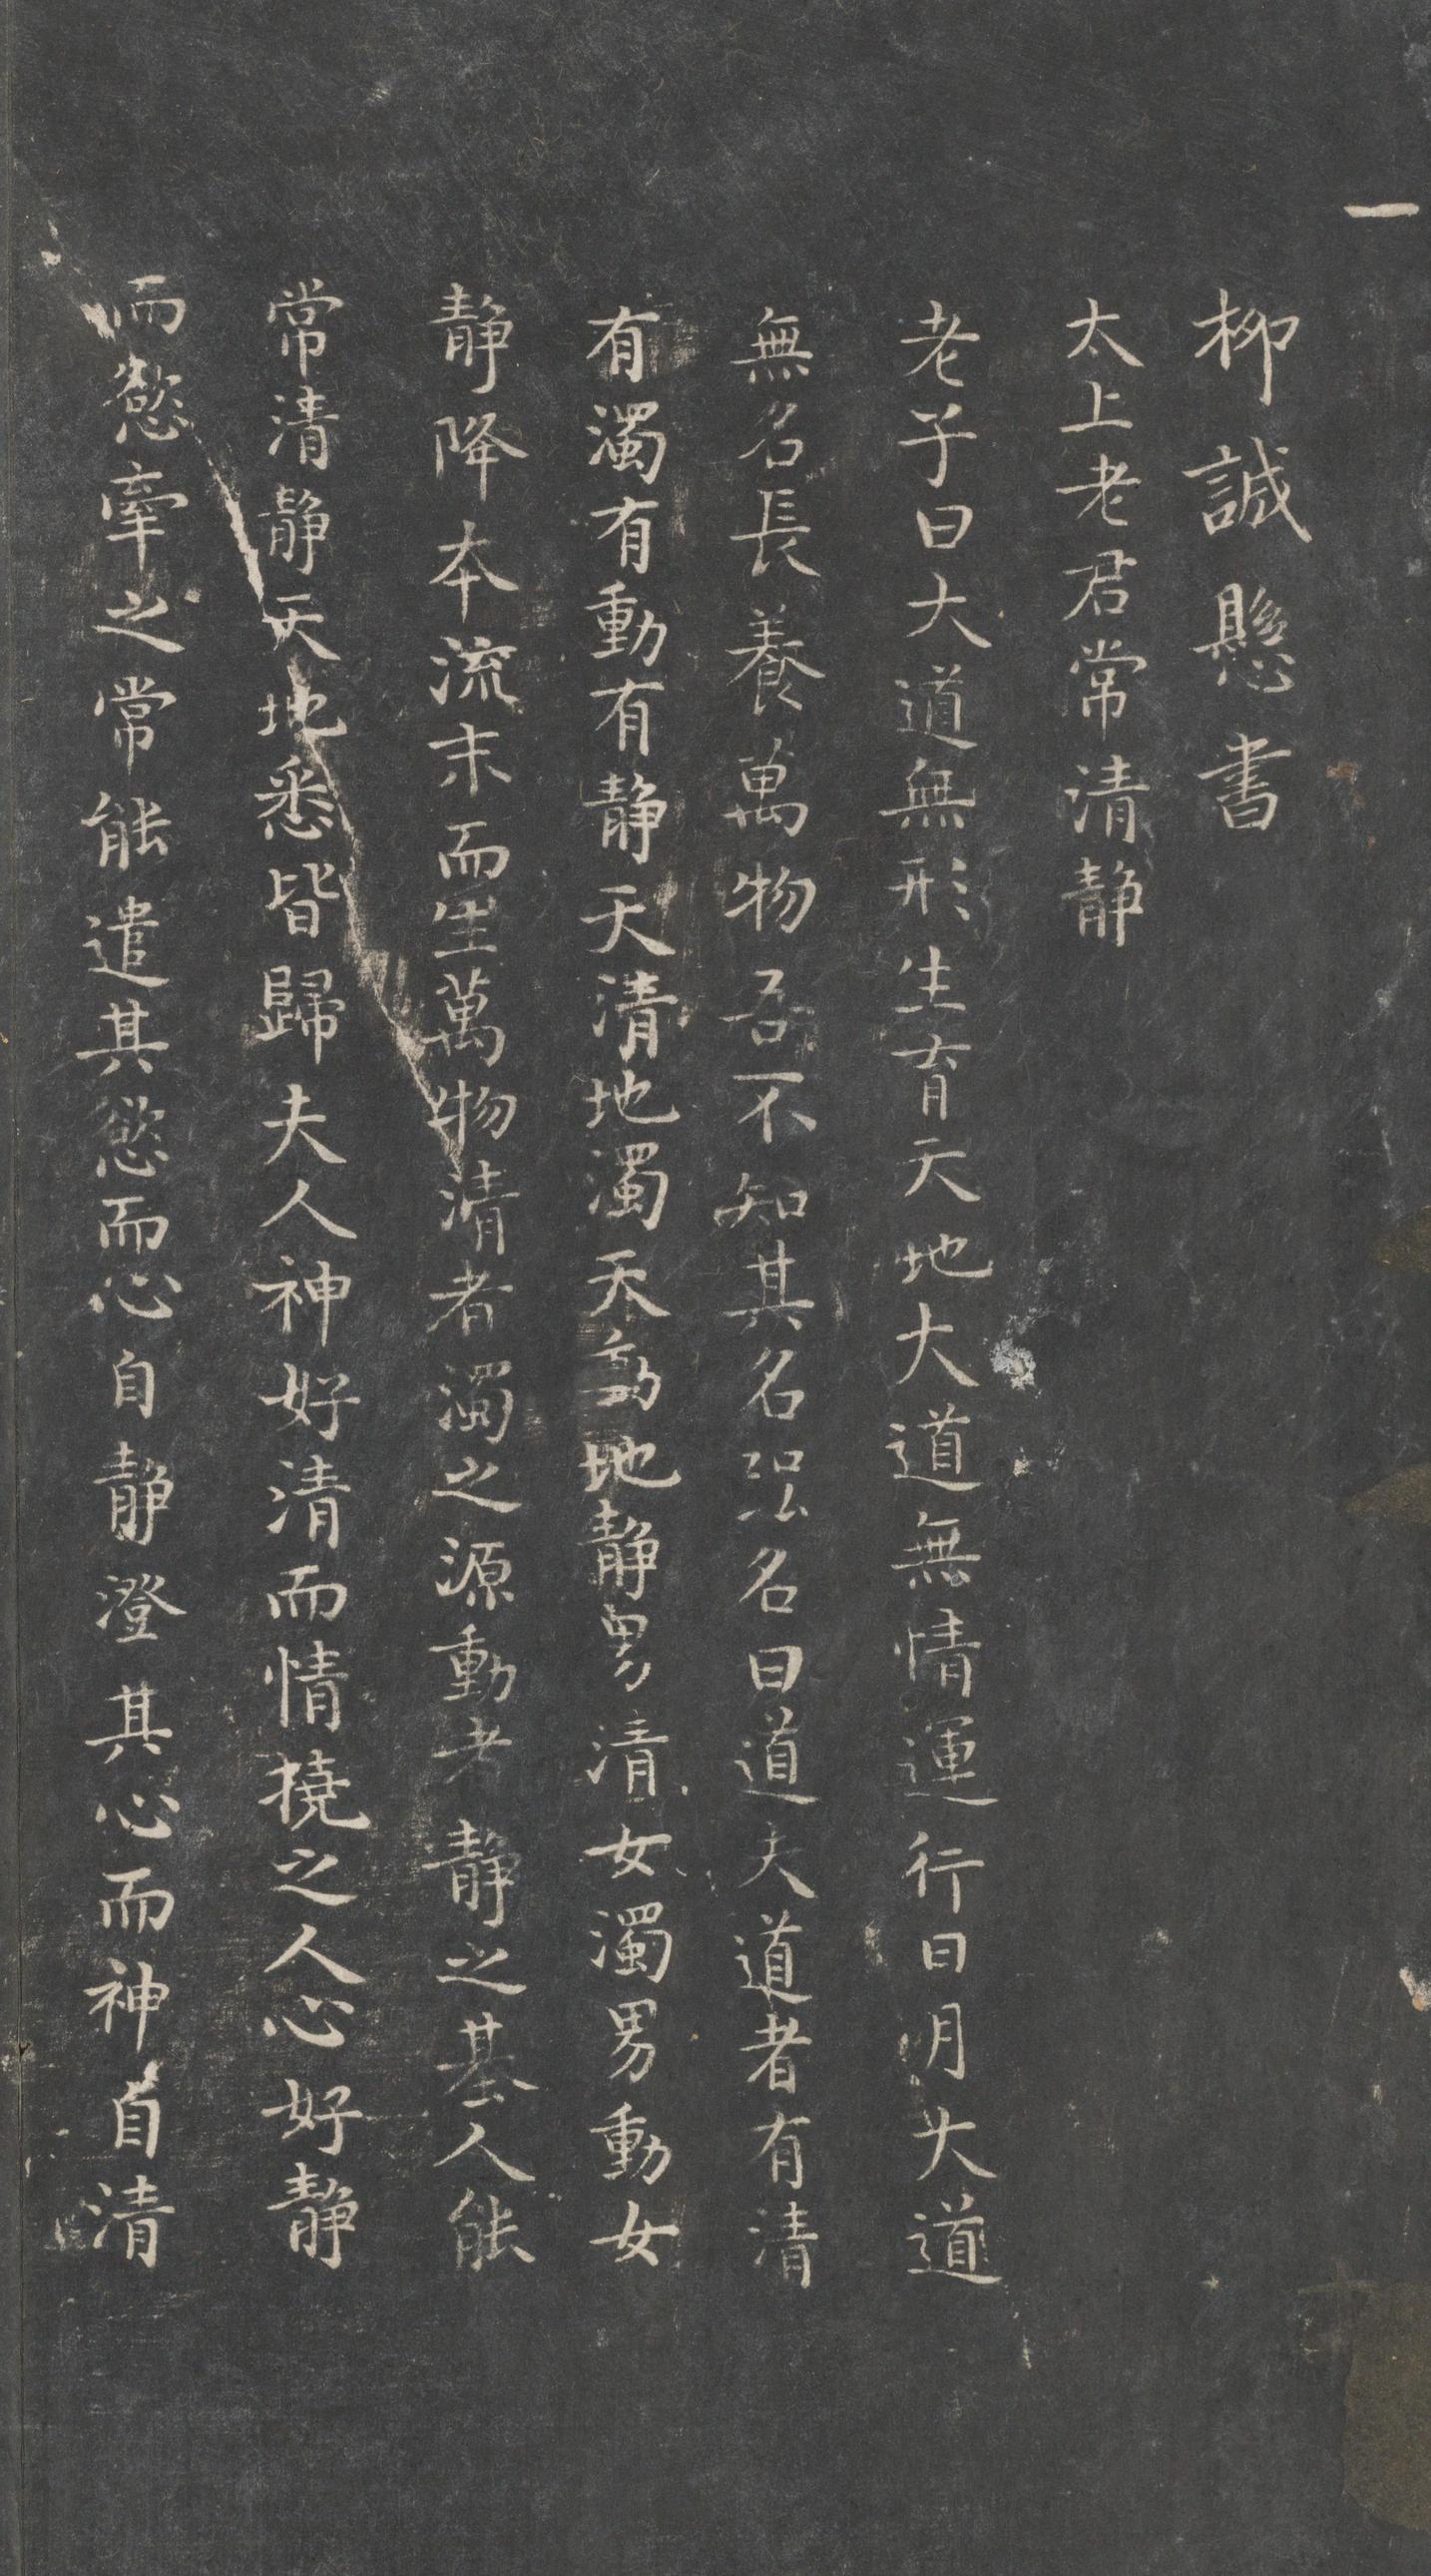 一
柳誠懸書
太上老君常清静
老子曰大道無形生育天地大道無情運行日明大道
無名長養萬物吾不知其名强名曰道夫道者有清
有濁有動有静天清地濁天動地静男清女濁男動女
静降本流末而生萬物清者濁之源動者静之基人能
常清静天地悉皆歸夫人神好清而情撓之人心好静
而慾牽之常能遣其慾而心自静澄其心而神自清